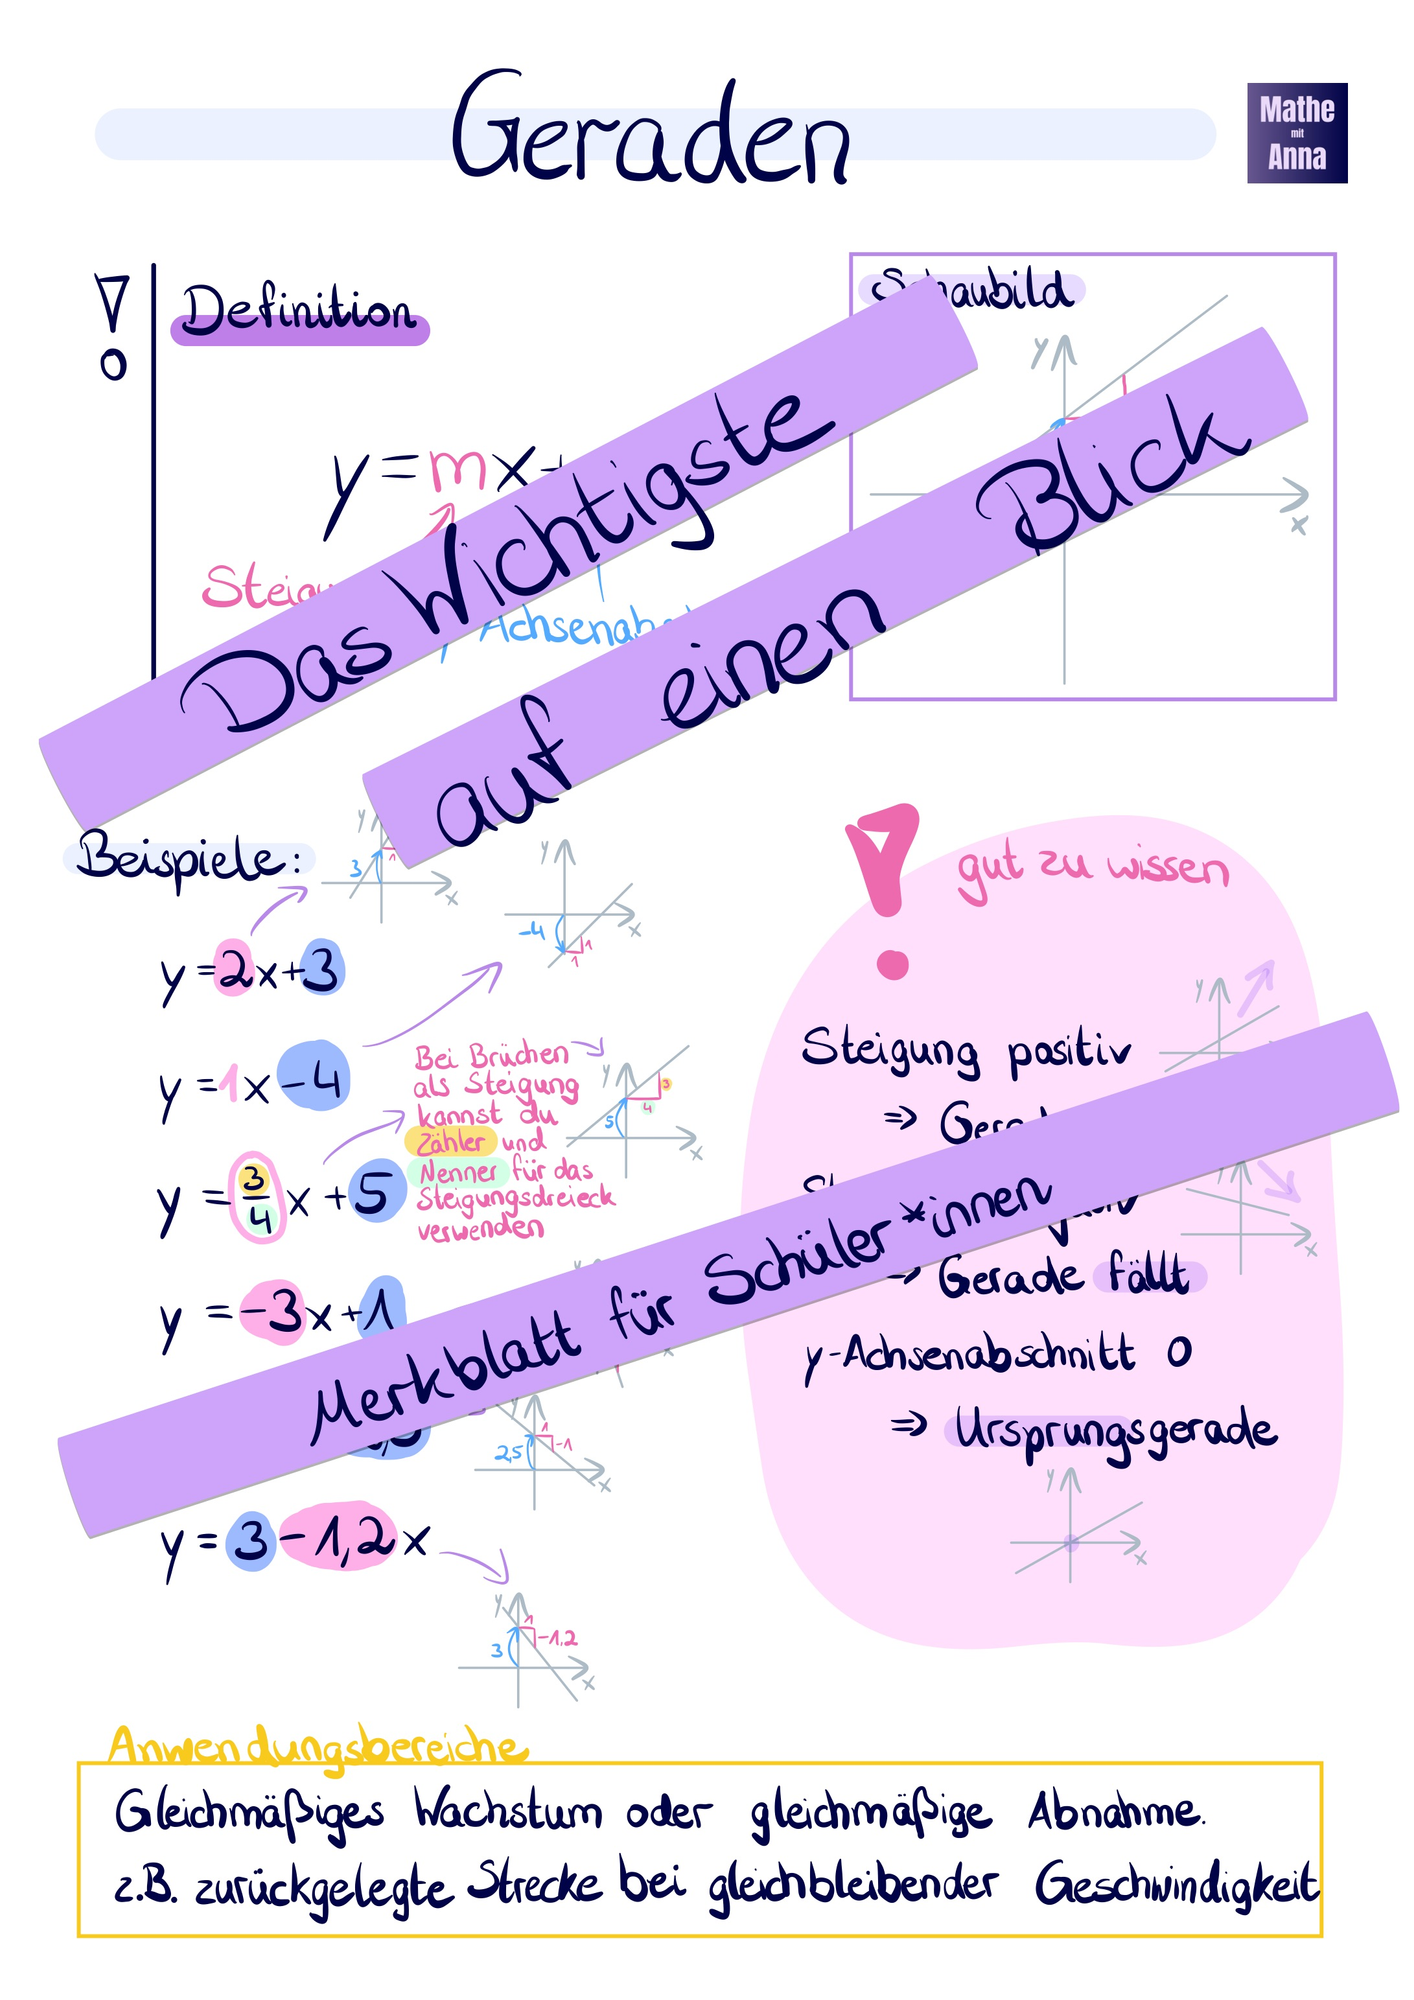 Geraden
Mathe
mit
Anna
Definition
y = mx +
Das Wichtigste
auf einen Blick
Schaubild
y
x
Beispiele:
3
1
x
y
-4
1
1
x
y = 2x + 3
y = 1x - 4
Bei Brüchen
als Steigung
kannst du
Zähler und
Nenner für das
Steigungsdreieck
verwenden
y
5
4
3
x
y = 3/4 x + 5
y = -3x + 1
Merkblatt für Schüler*innen
2,5
1
-1
x
y = 3 - 1,2x
y
3
1
-1,2
x
gut zu wissen
Steigung positiv
⇒
y
⇒ Gerade fällt
x
y-Achsenabschnitt 0
⇒ Ursprungsgerade
y
x
Anwendungsbereiche
Gleichmäßiges Wachstum oder gleichmäßige Abnahme.
z.B. zurückgelegte Strecke bei gleichbleibender Geschwindigkeit